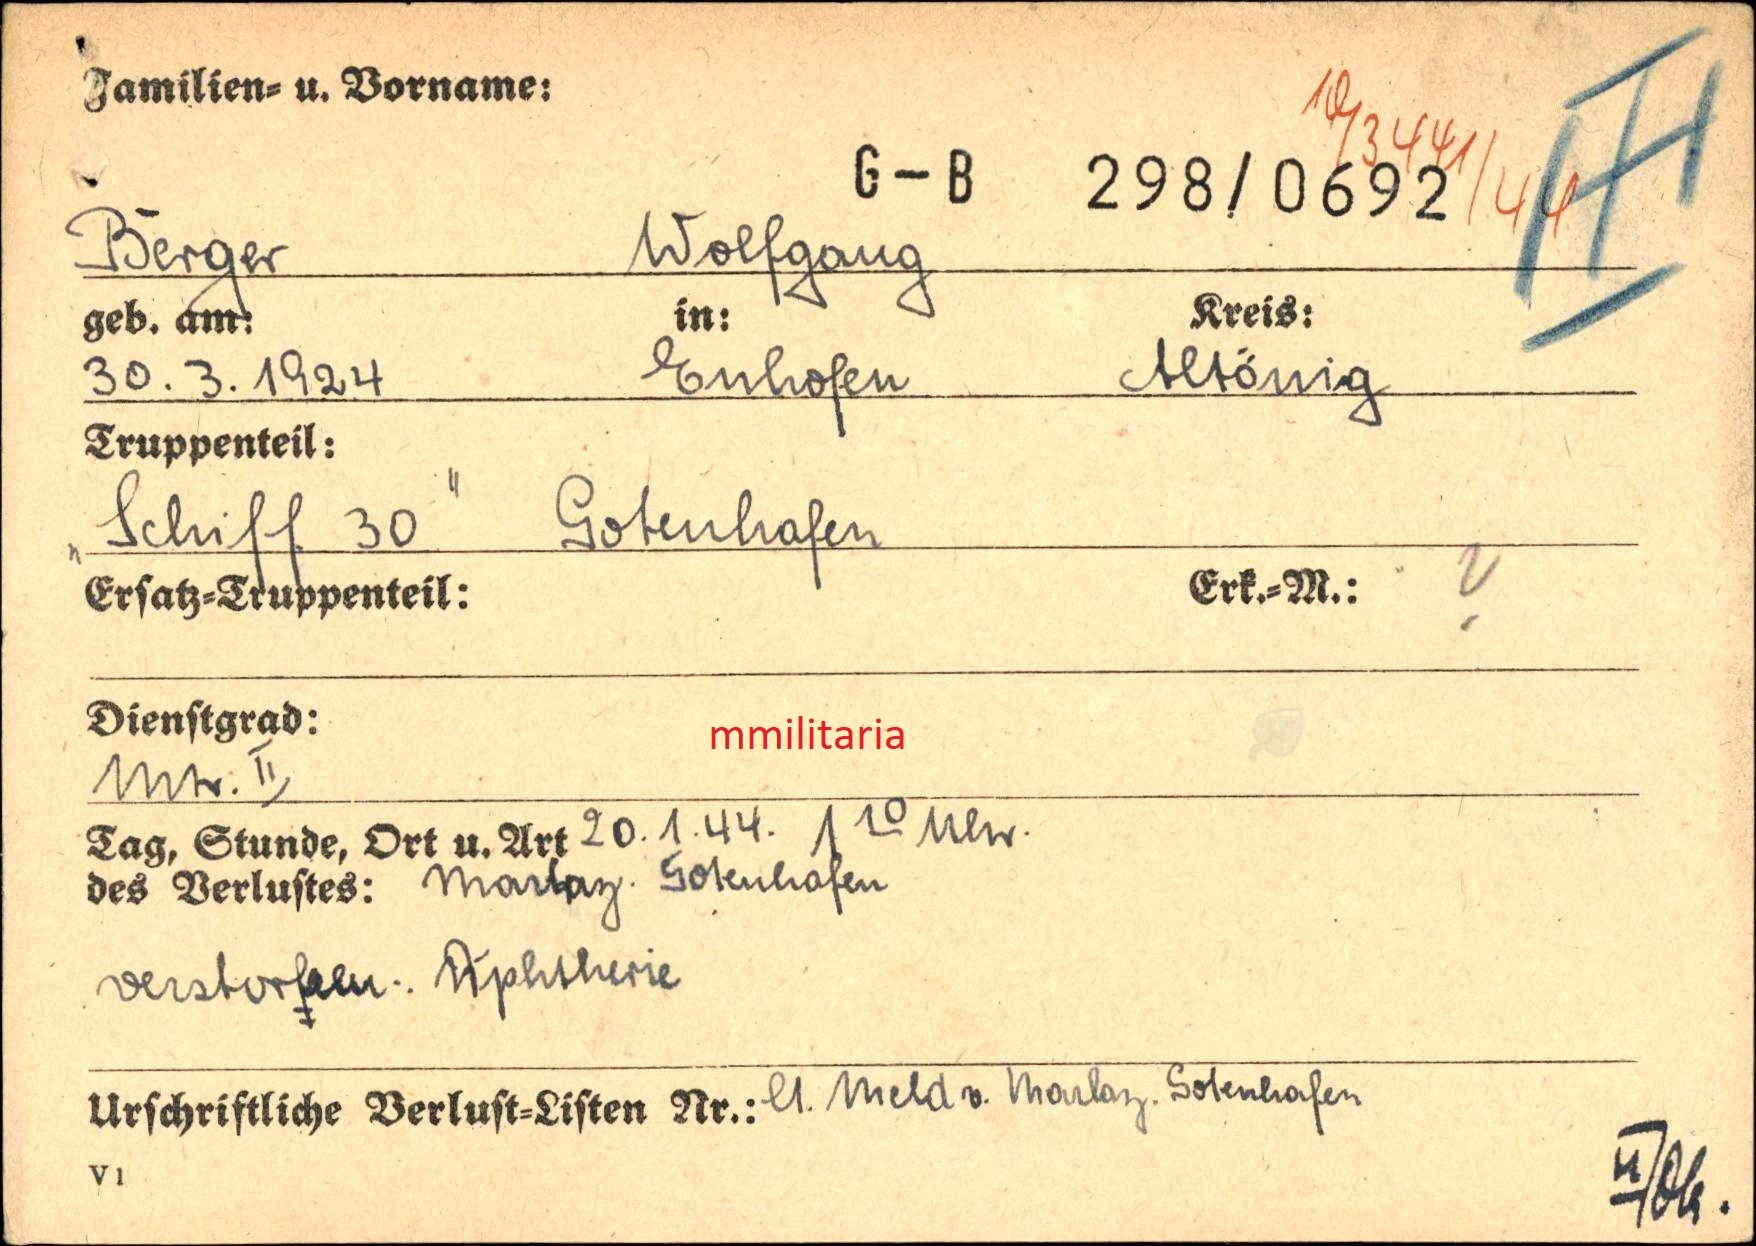 Familien- u. Vorname:
10/3441/44
G-B 298/0692
Berger Wolfgang
geb. am: in: Kreis:
30. 3. 1924 Enhofen Altönig
Truppenteil:
„Schiff 30" Gotenhafen
Ersatz-Truppenteil: Erk.-M.: ?
Dienstgrad:
Mtr. II
mmilitaria
Tag, Stunde, Ort u. Art 20. 1. 44. 1 10 Uhr.
des Verlustes: Marlaz. Gotenhafen
verstorben. Diphtherie
Urschriftliche Verlust-Listen Nr.: lt. Meld v. Marlaz. Gotenhafen
V 1